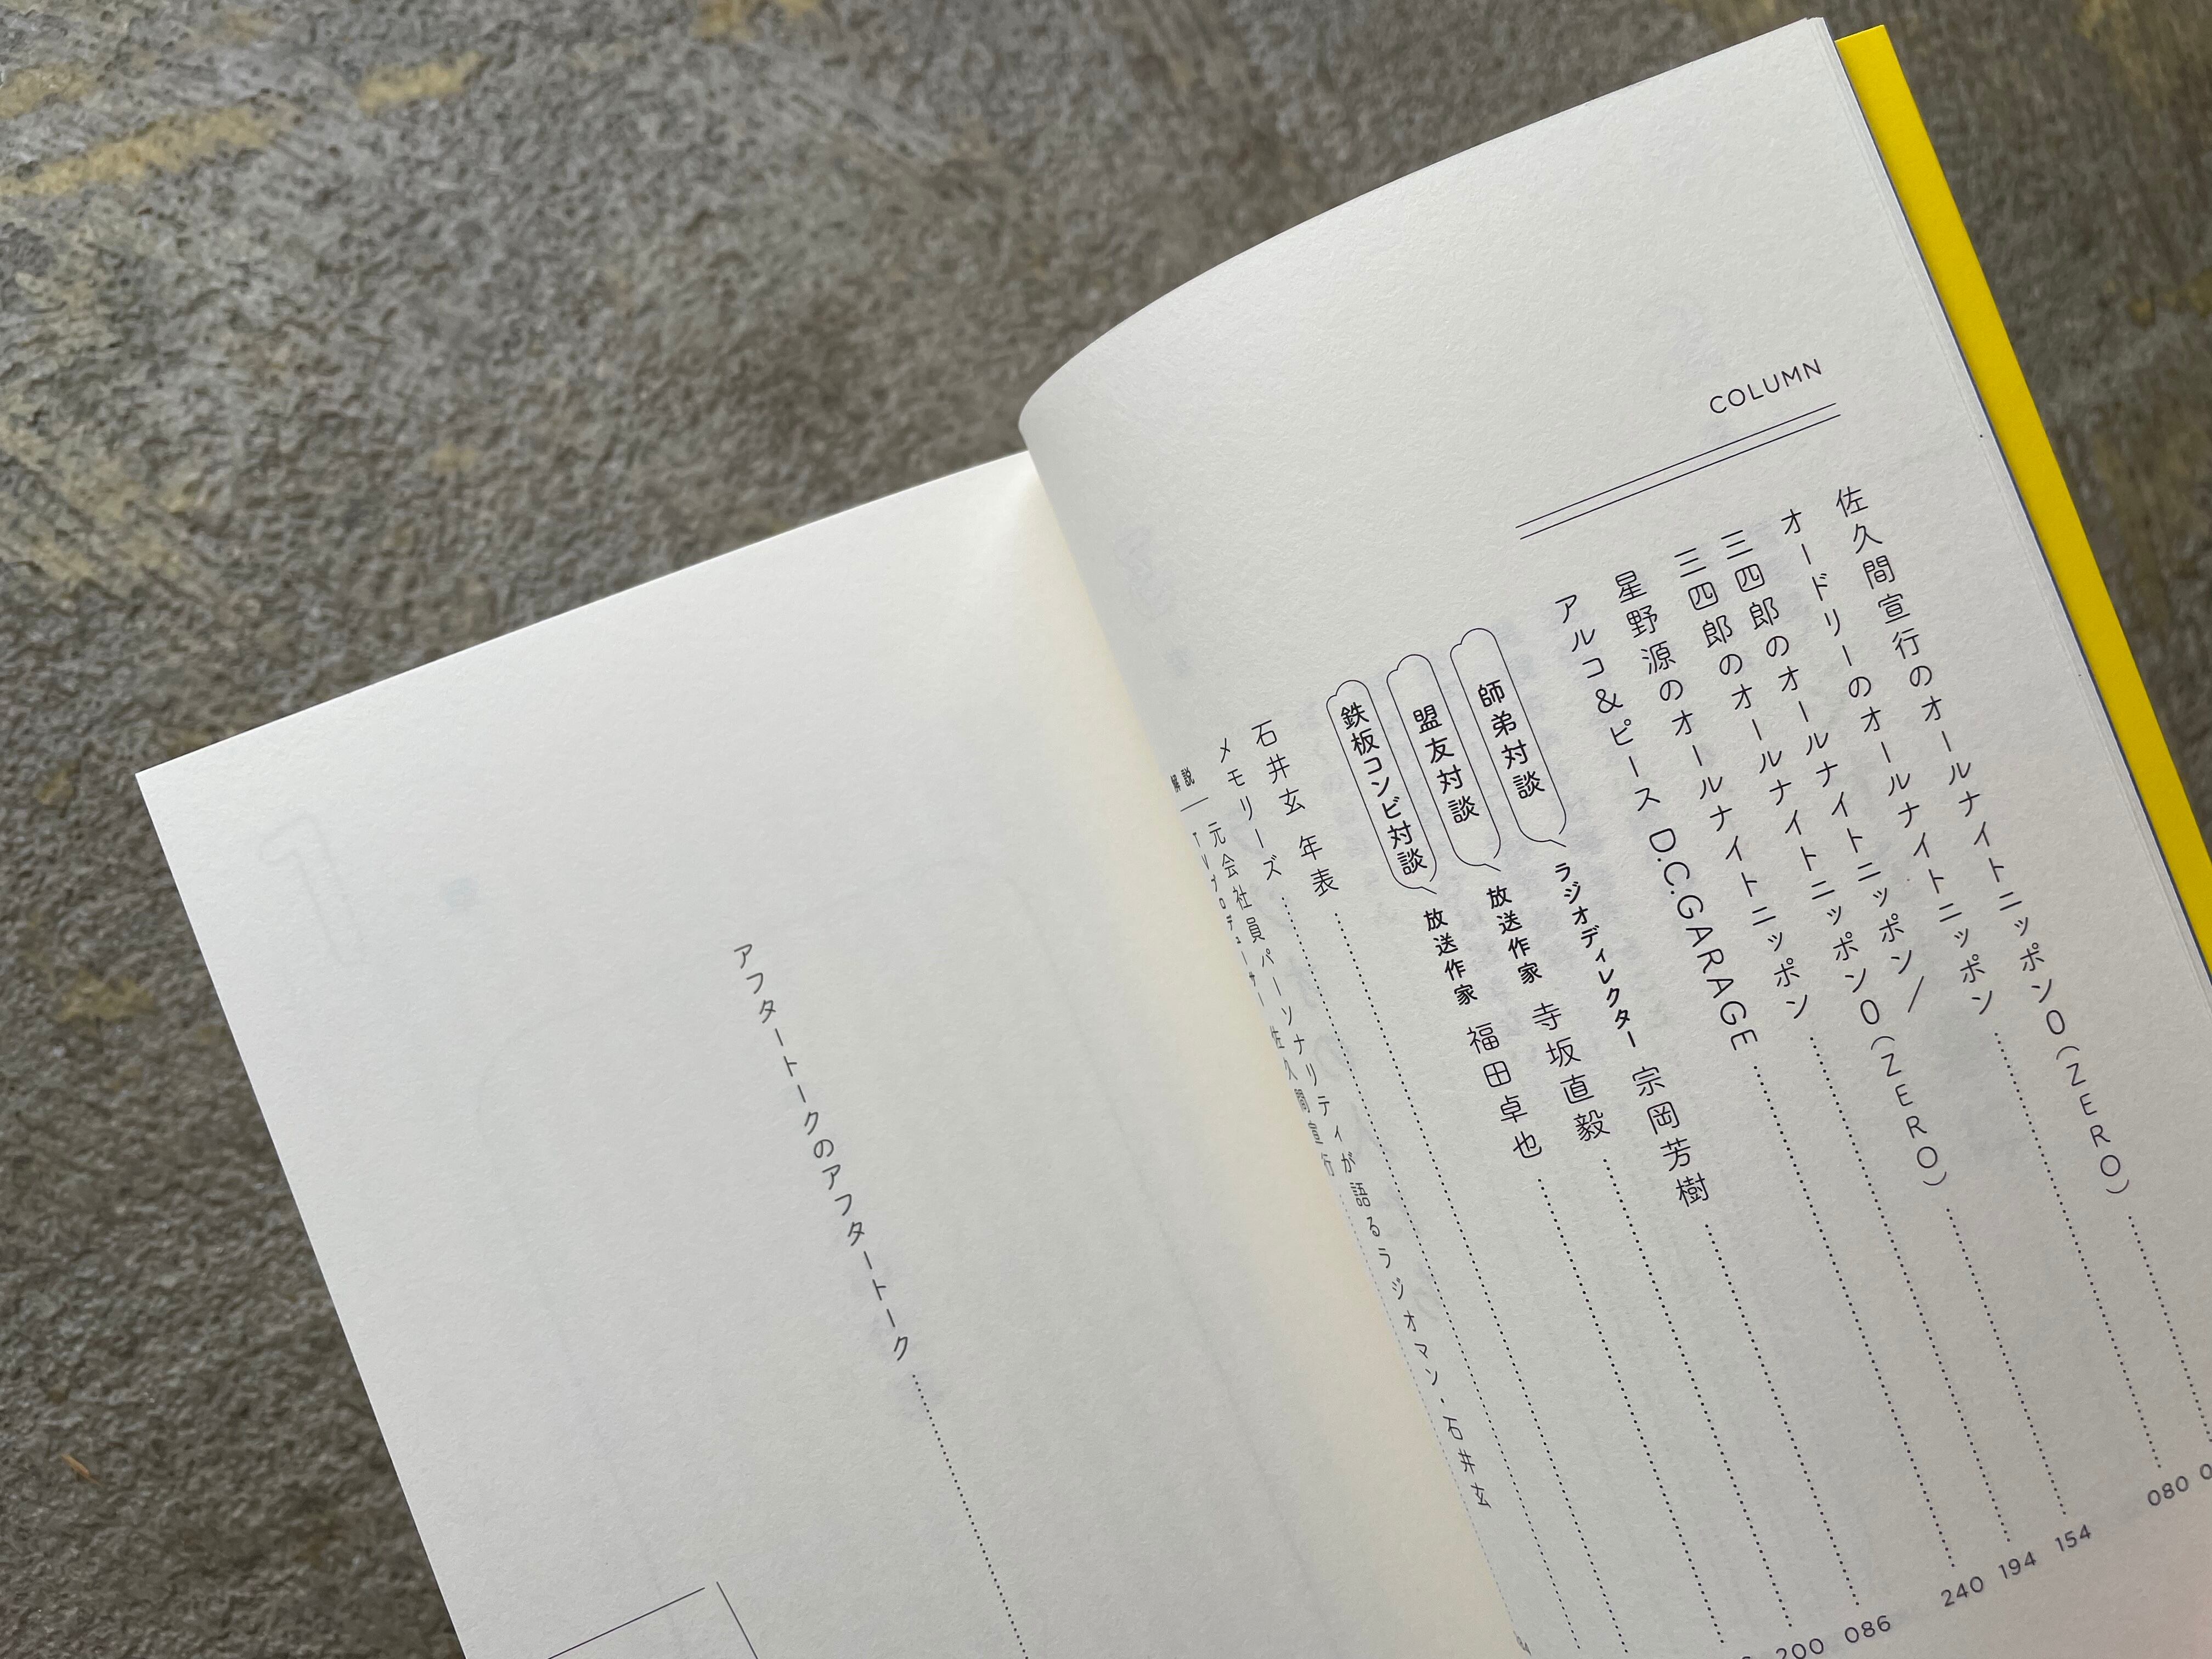 COLUMN
佐久間宣行のオールナイトニッポン0(ZERO)
オードリーのオールナイトニッポン
080
三四郎のオールナイトニッポン/
三四郎のオールナイトニッポン0(ZERO)
154
星野源のオールナイトニッポン
194
アルコ&ピース D.C.GARAGE
240
師弟対談 ラジオディレクター 宗岡芳樹
086
盟友対談 放送作家 寺坂直毅
200
鉄板コンビ対談 放送作家 福田卓也
石井玄 年表
メモリーズ
元会社員パーソナリティが語るラジオマン・石井玄
解説 TVプロデューサー 佐久間宣行
アフタートークのアフタートーク